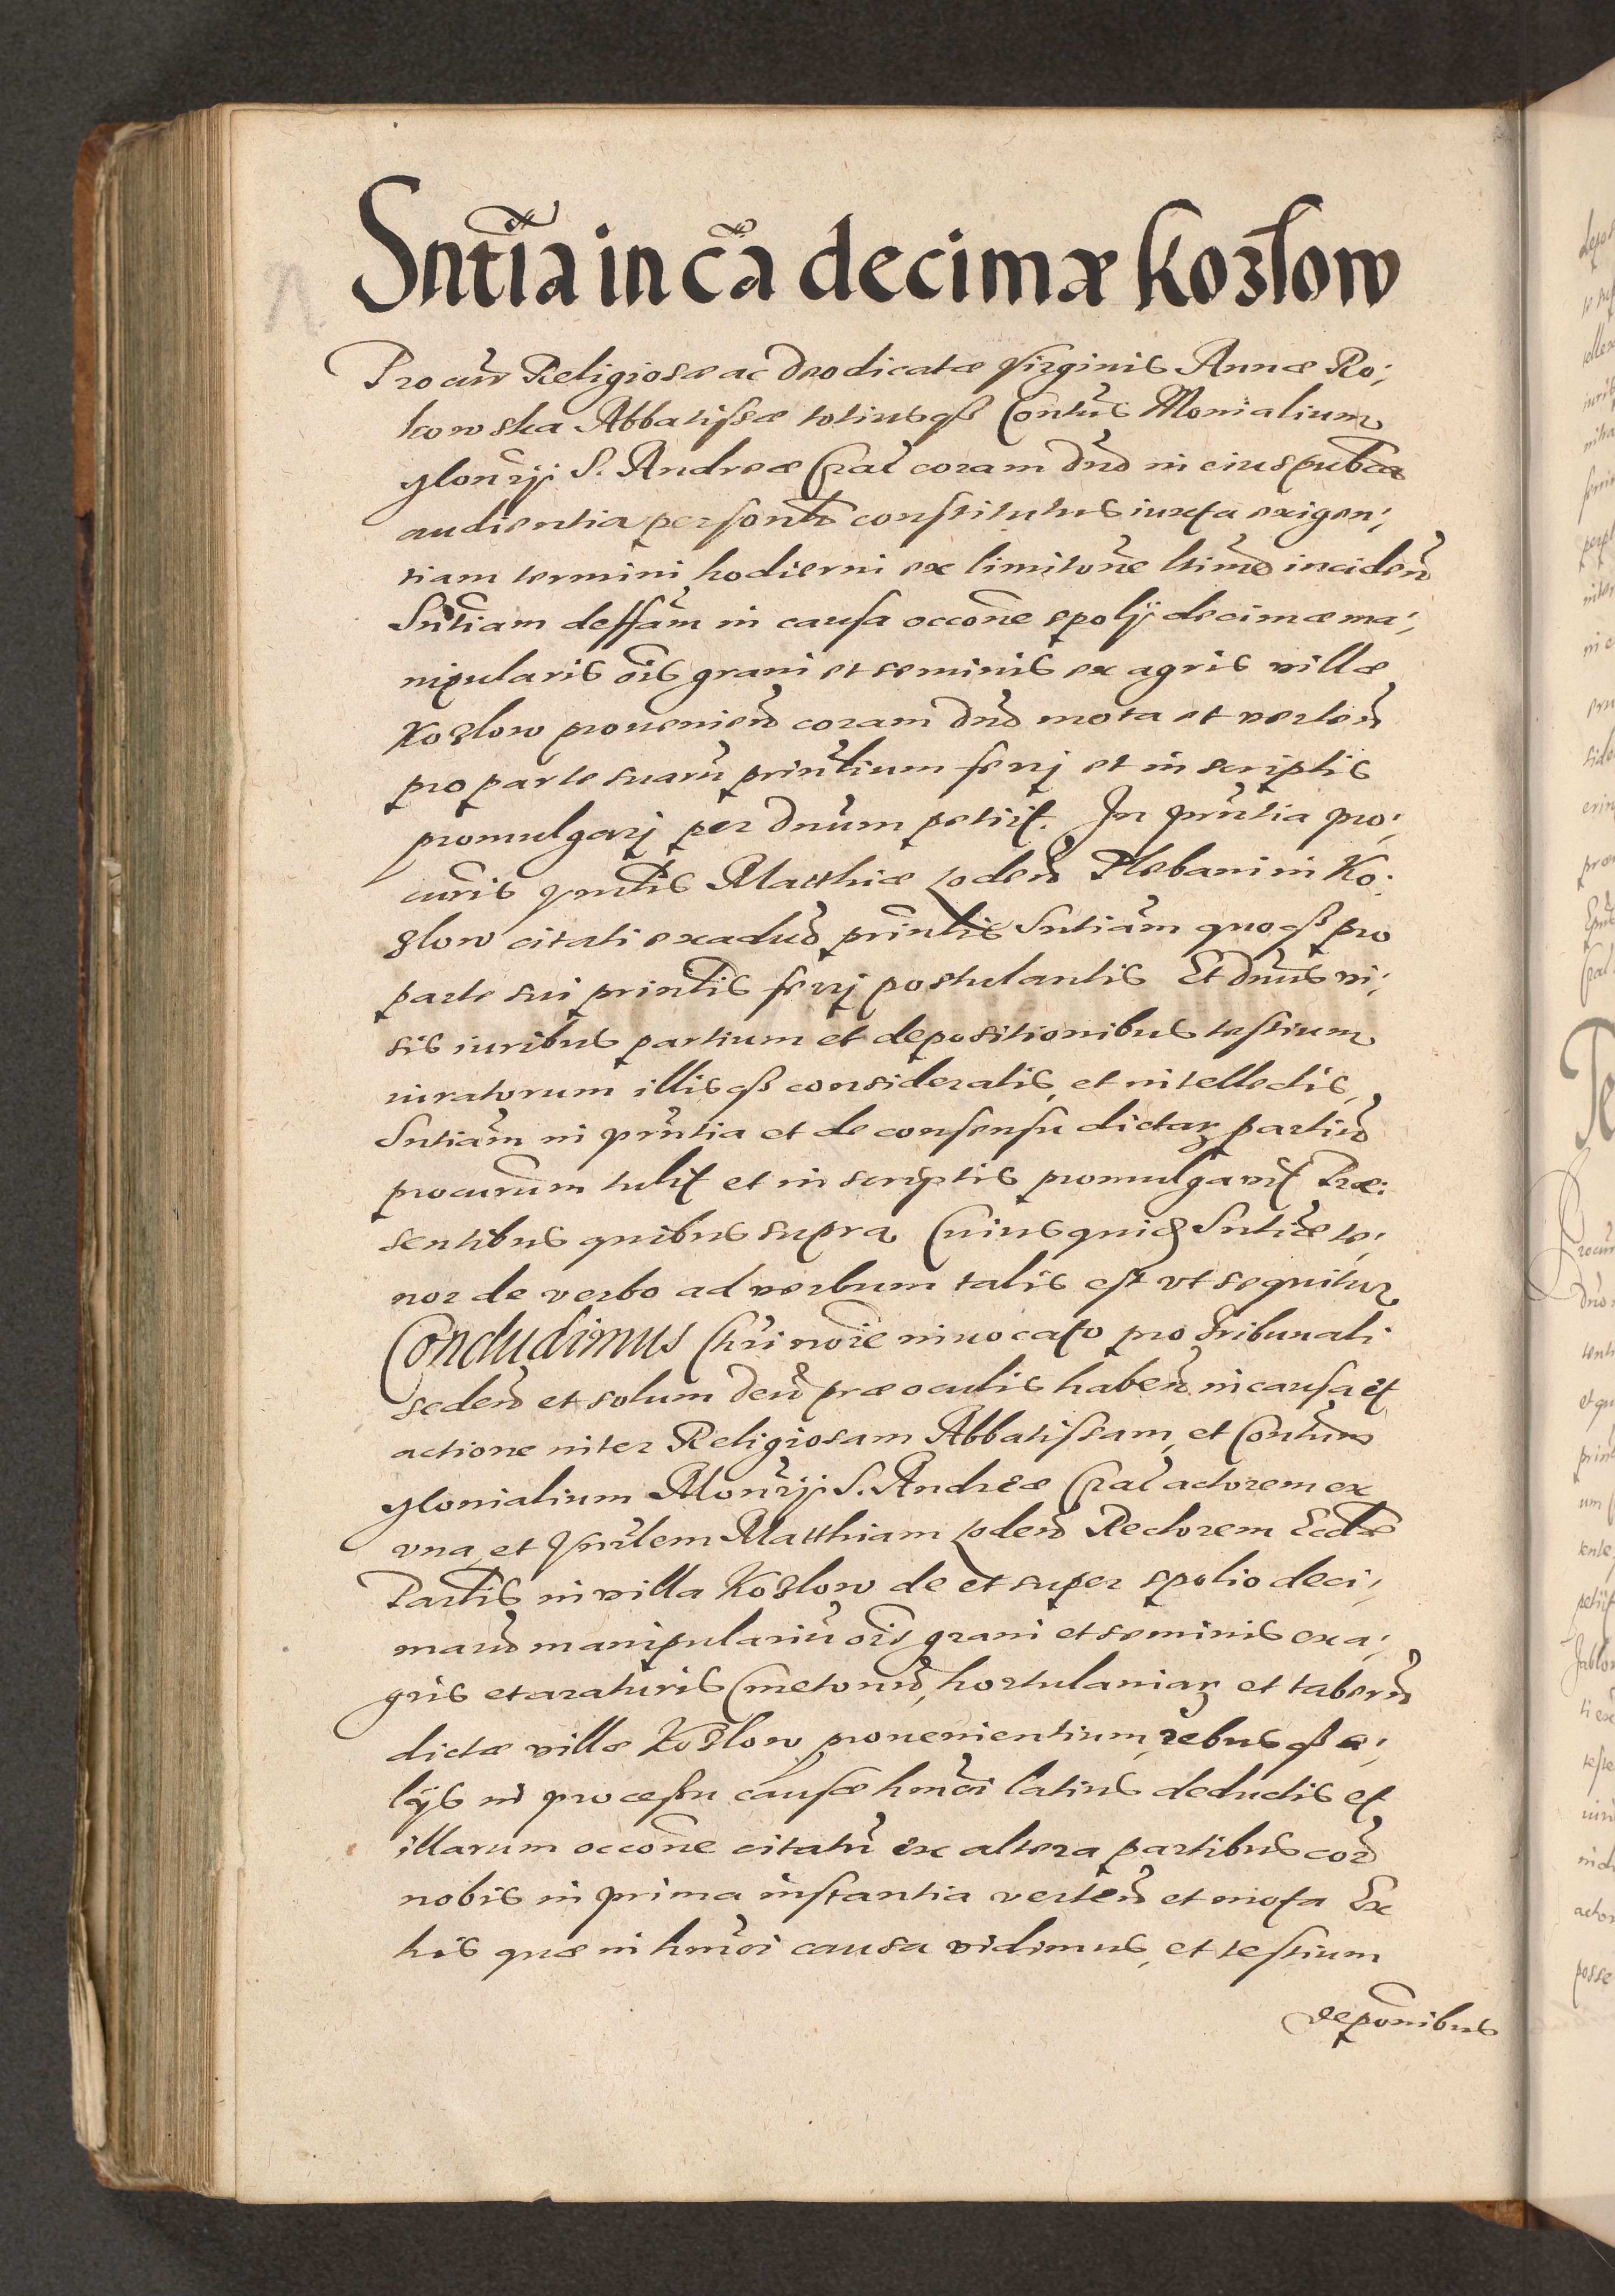 Sntia in ca decimæ Kozlow
Procur Religiosæ ac Deodicatæ Virginis Annæ Ro;
kowska Abbatissæ totiusqꝫ Contus Monialium
Monrij S. Andreæ Crac coram Dno in eius pubca
audientia personlr constitutus iuxta exigen;
tiam termini hodierni ex limitone ltimo inciden
Sntiam deffam in causa occone spolij decimæ ma;
nipularis ois grani et seminis ex agris villæ
Kozlow prouenien coram Dno mota et verten
pro parte suaru prinlium ferrj et in scriptis
promulgarj per Dnum petiit. In pntia pro;
curis Hnlis Matthiæ Plebani in Ko;
zlow citati ex aduo prinlis Sntiam quoqꝫ pro
parte sui prinlis ferrj postulantis Et Dnus vi;
sis iuribus partium et depositionibus testium
iuratorum illisqꝫ consideratis, et intellectis,
Sntiam in pntia et de consensu dictarꝫ partiu
procurum tulit et in scriptis promulgauit Præ;
sentibus quibus supra. Cuius quid Sntiæ te;
nor de verbo ad verbum talis est vt sequitur
Concludimus Chri noie inuocato pro Tribunali
seden et solum Deu præ oculis haben in causa et
actione inter Religiosam Abbatissam, et Contum
Monialium Monrij S. Andreæ Crac actorem ex
vna, et Hnlem Matthiam Rectorem Ecclæ
Parlis in villa Kozlow de et super spolio deci;
maru manipulariu ois grani et seminis ex a;
gris et araturis Cmetonu, hortulaniarꝫ et tabern
dictæ villæ Kozlow prouenientium, rebusqꝫ a;
lijs in processu causæ hmoi latius deductis et
illarum occone citatu ex altera partibus cor
nobis in prima instantia verten et mota Ex
his quæ in hmoi causa vidimus, et testium
deponibus